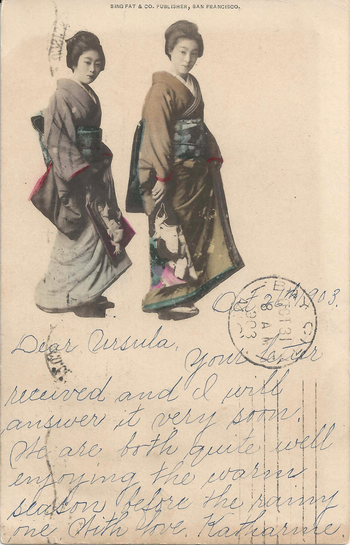 SING FAT & CO. PUBLISHER, SAN FRANCISCO.
Oct 26th 1903.
Dear Ursula,
Your letter
received and I will
answer it very soon.
We are both quite well
enjoying the warm
season before the rainy
one. With love. Katharine